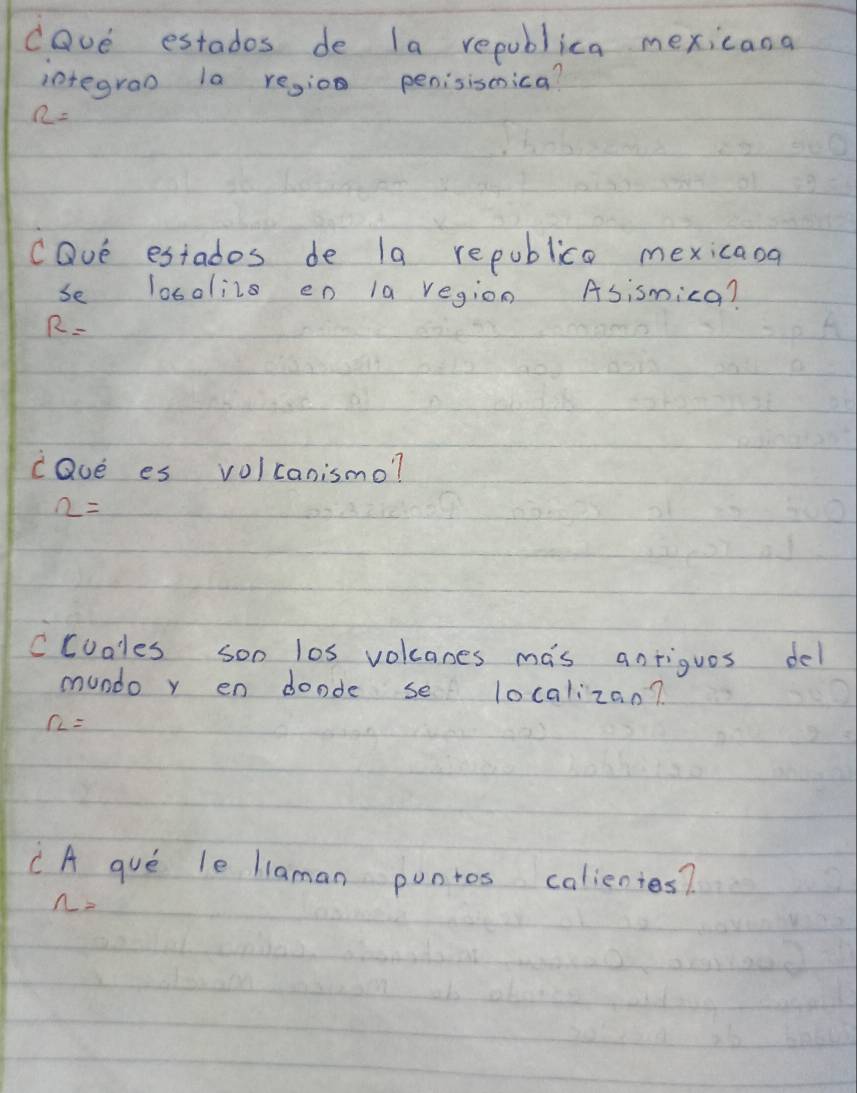 ¿Qué estados de la republica mexicana
integran la region penisismica?
R=
¿Qué estados de la republica mexicana
se localiza en la region Asismica?
R=
¿Qué es volcanismo?
R=
¿Cuáles son los volcanes más antiguos del
mundo y en donde se localizan?
R=
¿A qué le llaman puntos calientes?
R=